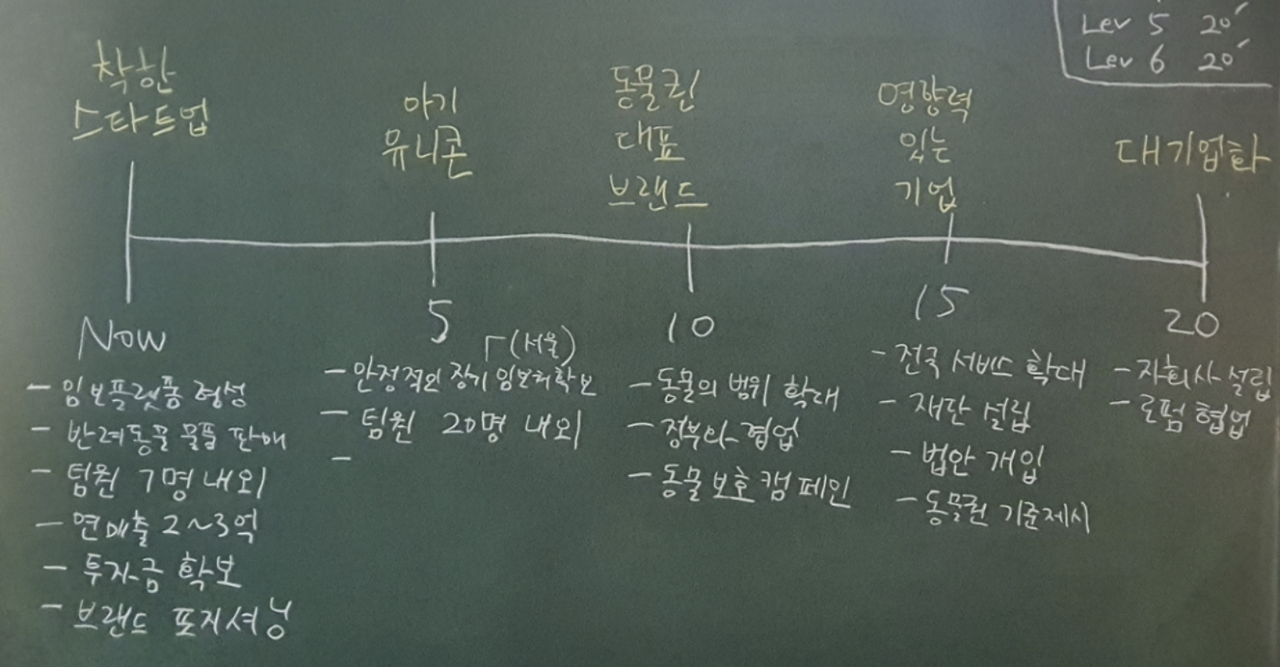 Lev 5 20′
Lev 6 20′
착한
스타트업
아기
유니콘
동물권
대표
브랜드
영향력
있는
기업
대기업화
Now
- 임보플랫폼 형성
- 반려동물 물품 판매
- 팀원 7명 내외
- 연매출 2~3억
- 투자금 확보
- 브랜드 포지셔닝
5
(서울)
- 안정적인 장기 임보처확보
- 팀원 20명 내외
-
10
- 동물의 범위 확대
- 정부와 협업
- 동물보호 캠페인
15
- 전국 서비스 확대
- 재단 설립
- 법안 개입
- 동물권 기준제시
20
- 자회사 설립
- 로펌 협업